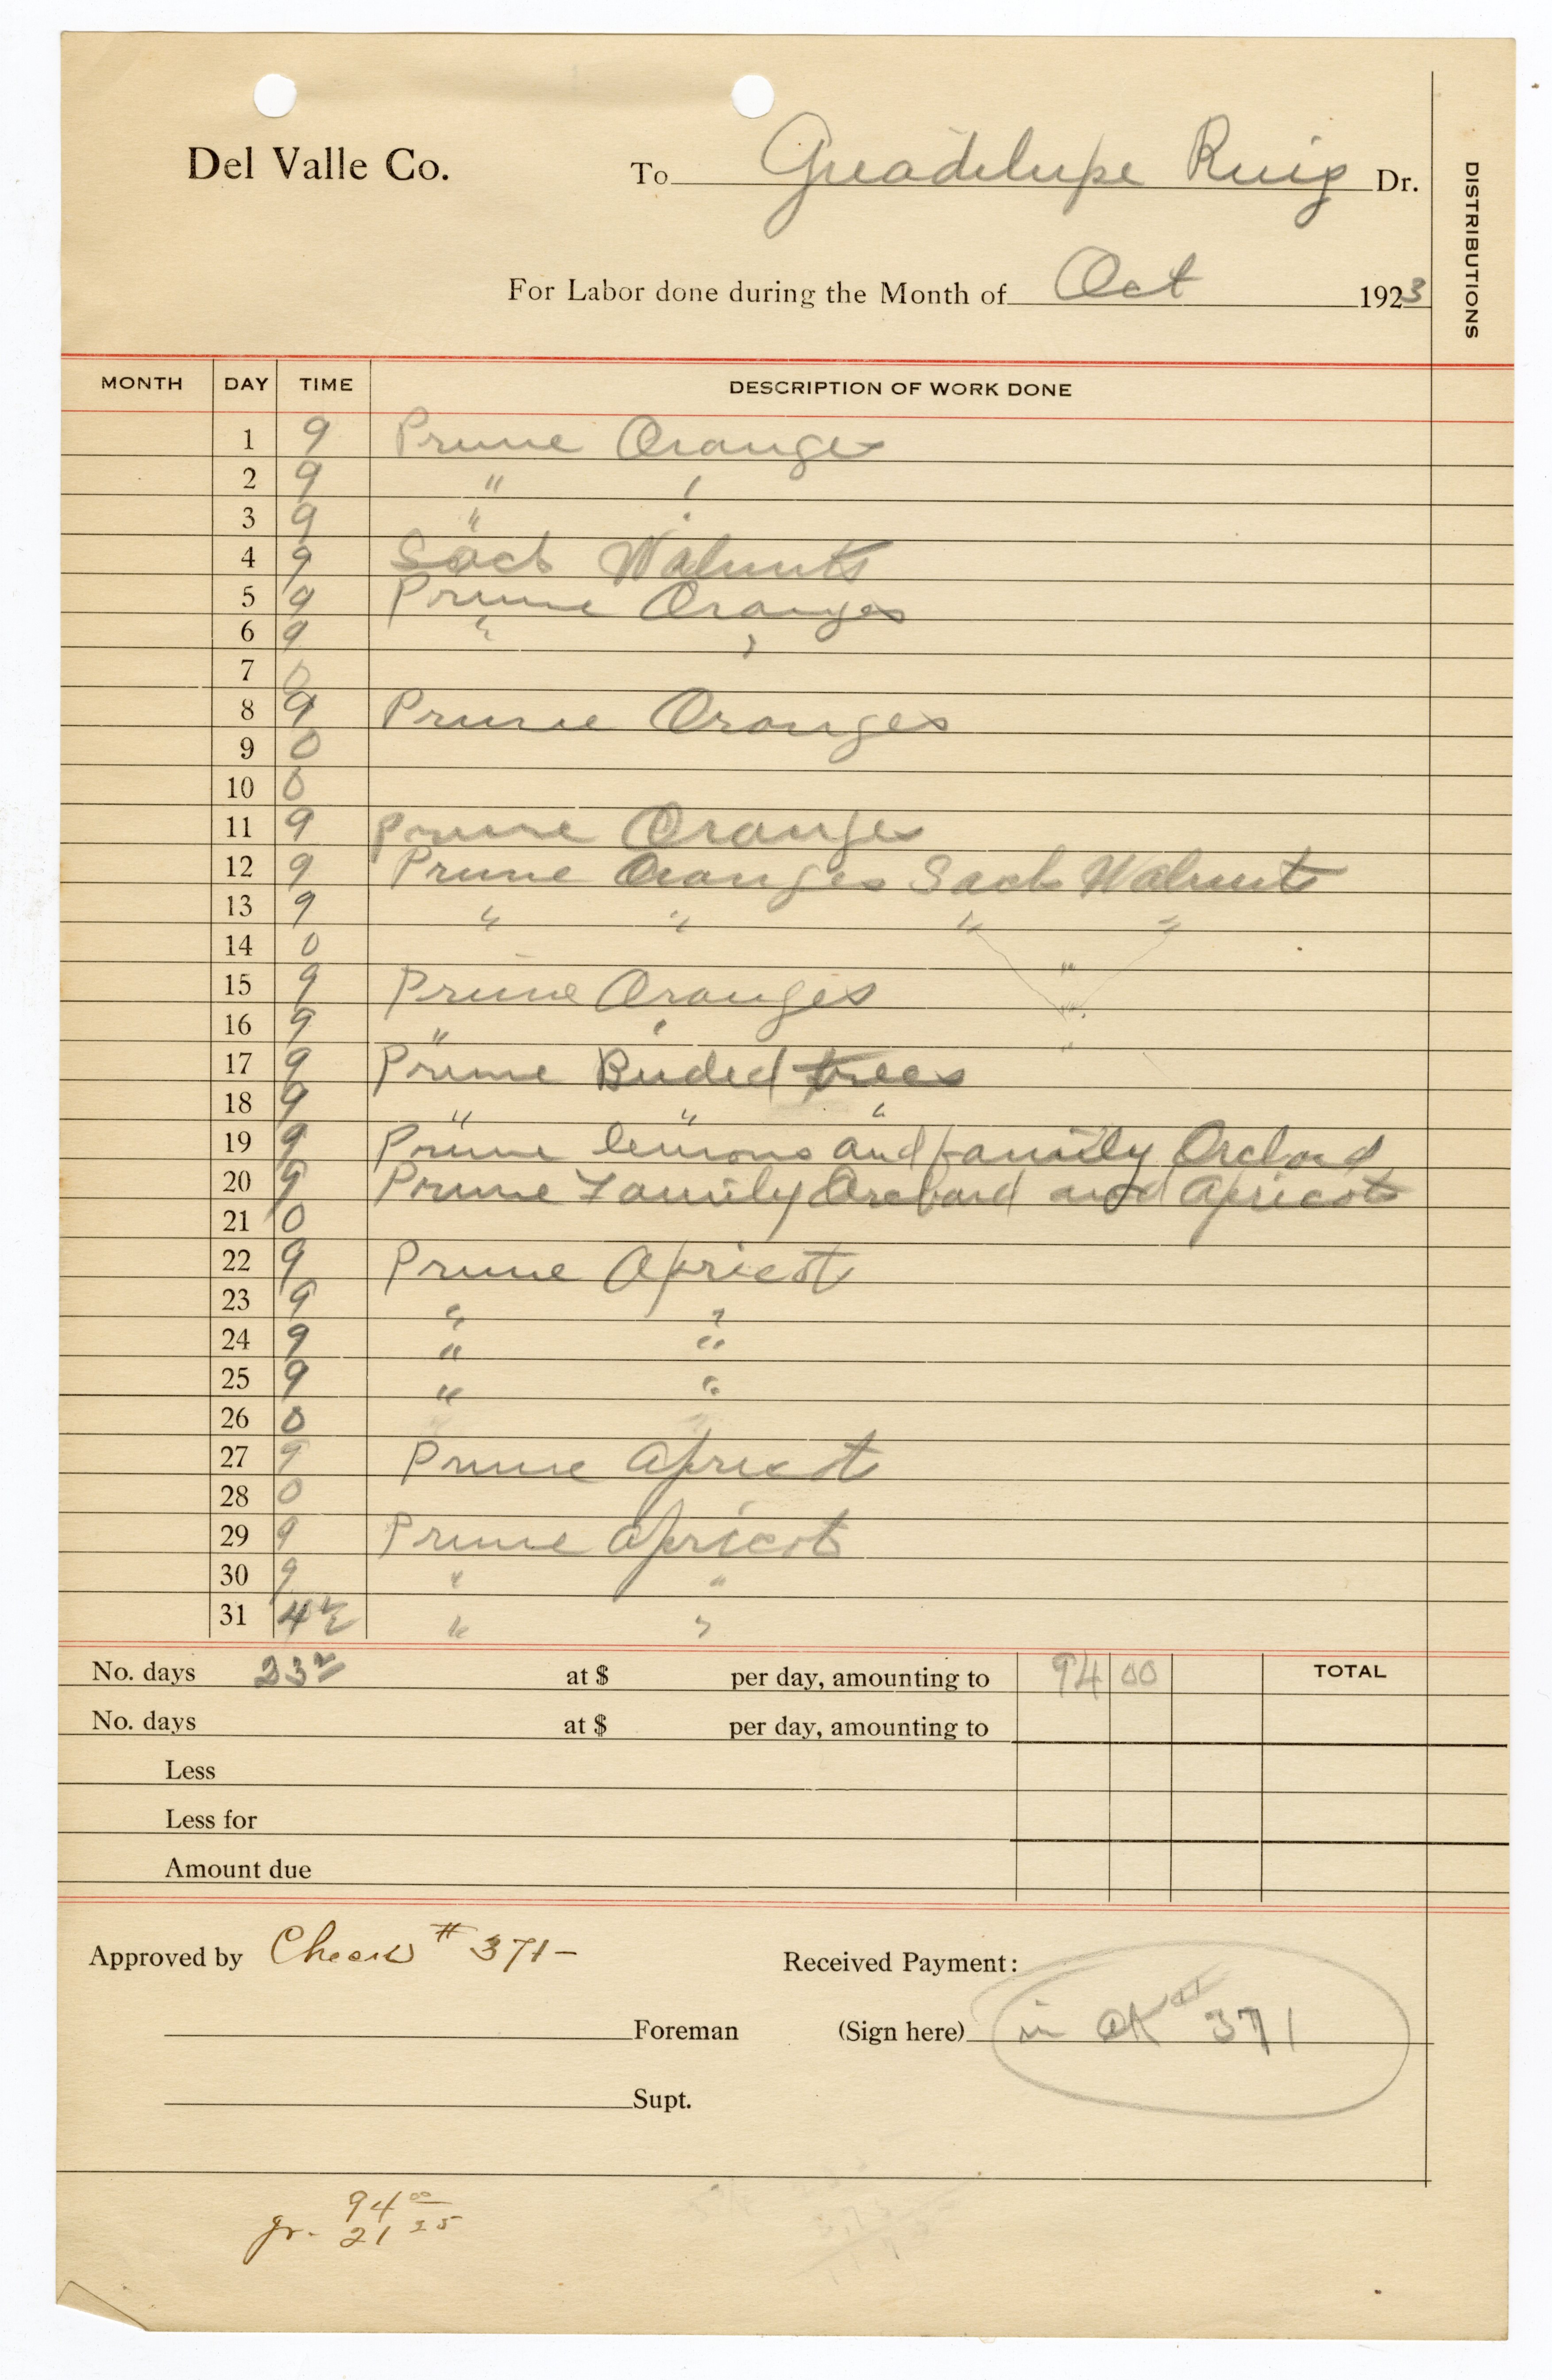 Del Valle Co. To Guadelupe Ruiz Dr.
DISTRIBUTIONS
For Labor done during the Month of Oct 1923
MONTH DAY TIME DESCRIPTION OF WORK DONE
1 9 Prune Oranges
2 9 " "
3 9 " "
4 9 Sack Walnuts
5 9 Prune Oranges
6 9 " "
7 0
8 9 Prune Oranges
9 0
10 0
11 9 Prune Oranges
12 9 Prune Oranges Sack Walnuts
13 9 " " " "
14 0 "
15 9 Prune Oranges "
16 9 " " "
17 9 Prune Buded trees
18 9 " " "
19 9 Prune lemons and family Orchard
20 9 Prune Family Orchard and Apricots
21 0
22 9 Prune Apricot
23 9 " "
24 9 " "
25 9 " "
26 0
27 9 Prune apricot
28 0
29 9 Prune apricots
30 9 " "
31 4½ " "
No. days 23½ at $ per day, amounting to 94 00 TOTAL
No. days at $ per day, amounting to
Less
Less for
Amount due
Approved by Check # 371- Received Payment:
Foreman (Sign here) in CK # 371
Supt.
94 00
gr. 21 25